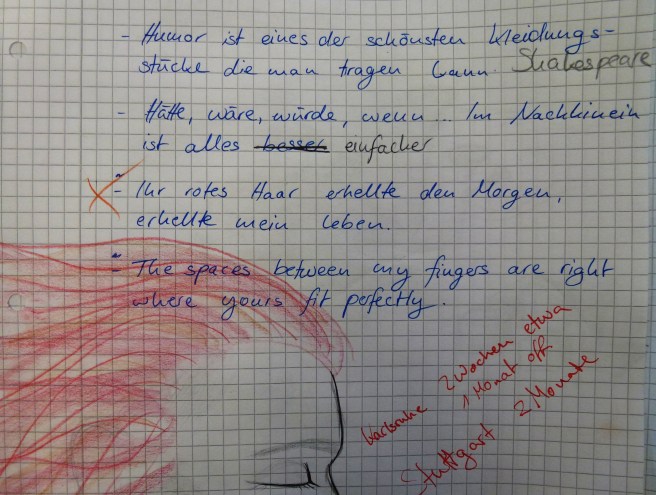 - Humor ist eines der schönsten Kleidungs-
stücke die man tragen kann. Shakespeare
- Hätte, wäre, würde, wenn... Im Nachhinein
ist alles besser einfacher
- Ihr rotes Haar erhellte den Morgen,
erhellte mein Leben.
- The spaces between my fingers are right
where yours fit perfectly.
Karlsruhe 2 Wochen etwa
1 Monat off
Stuttgart 2 Monate